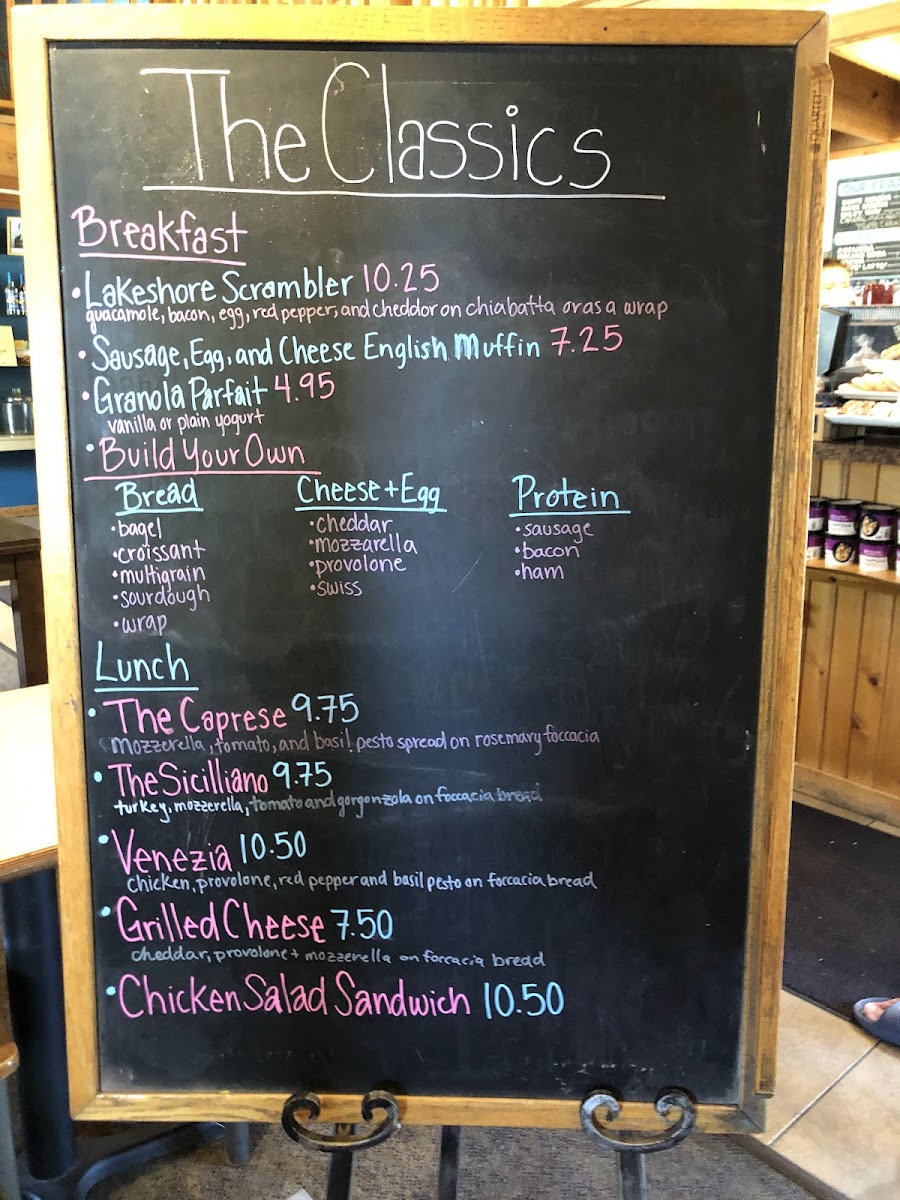 The Classics
Breakfast
•Lakeshore Scrambler 10.25
guacamole, bacon, egg, red pepper, and cheddor on chiabatta or as a wrap
•Sausage, Egg, and Cheese English Muffin 7.25
•Granola Parfait 4.95
vanilla or plain yogurt
•Build Your Own
Bread
•bagel
•croissant
•multigrain
•sourdough
•wrap
Cheese+Egg
•cheddar
•mozzarella
•provolone
•swiss
Protein
•sausage
•bacon
•ham
Lunch
•The Caprese 9.75
mozzerella, tomato, and basil pesto spread on rosemary foccacia
•The Sicilliano 9.75
turkey, mozzerella, tomato and gorgonzola on foccacia bread
•Venezia 10.50
chicken, provolone, red pepper and basil pesto on forcacia bread
•Grilled Cheese 7.50
cheddar, provolone + mozzerella on forcacia bread
•Chicken Salad Sandwich 10.50
QUARTET